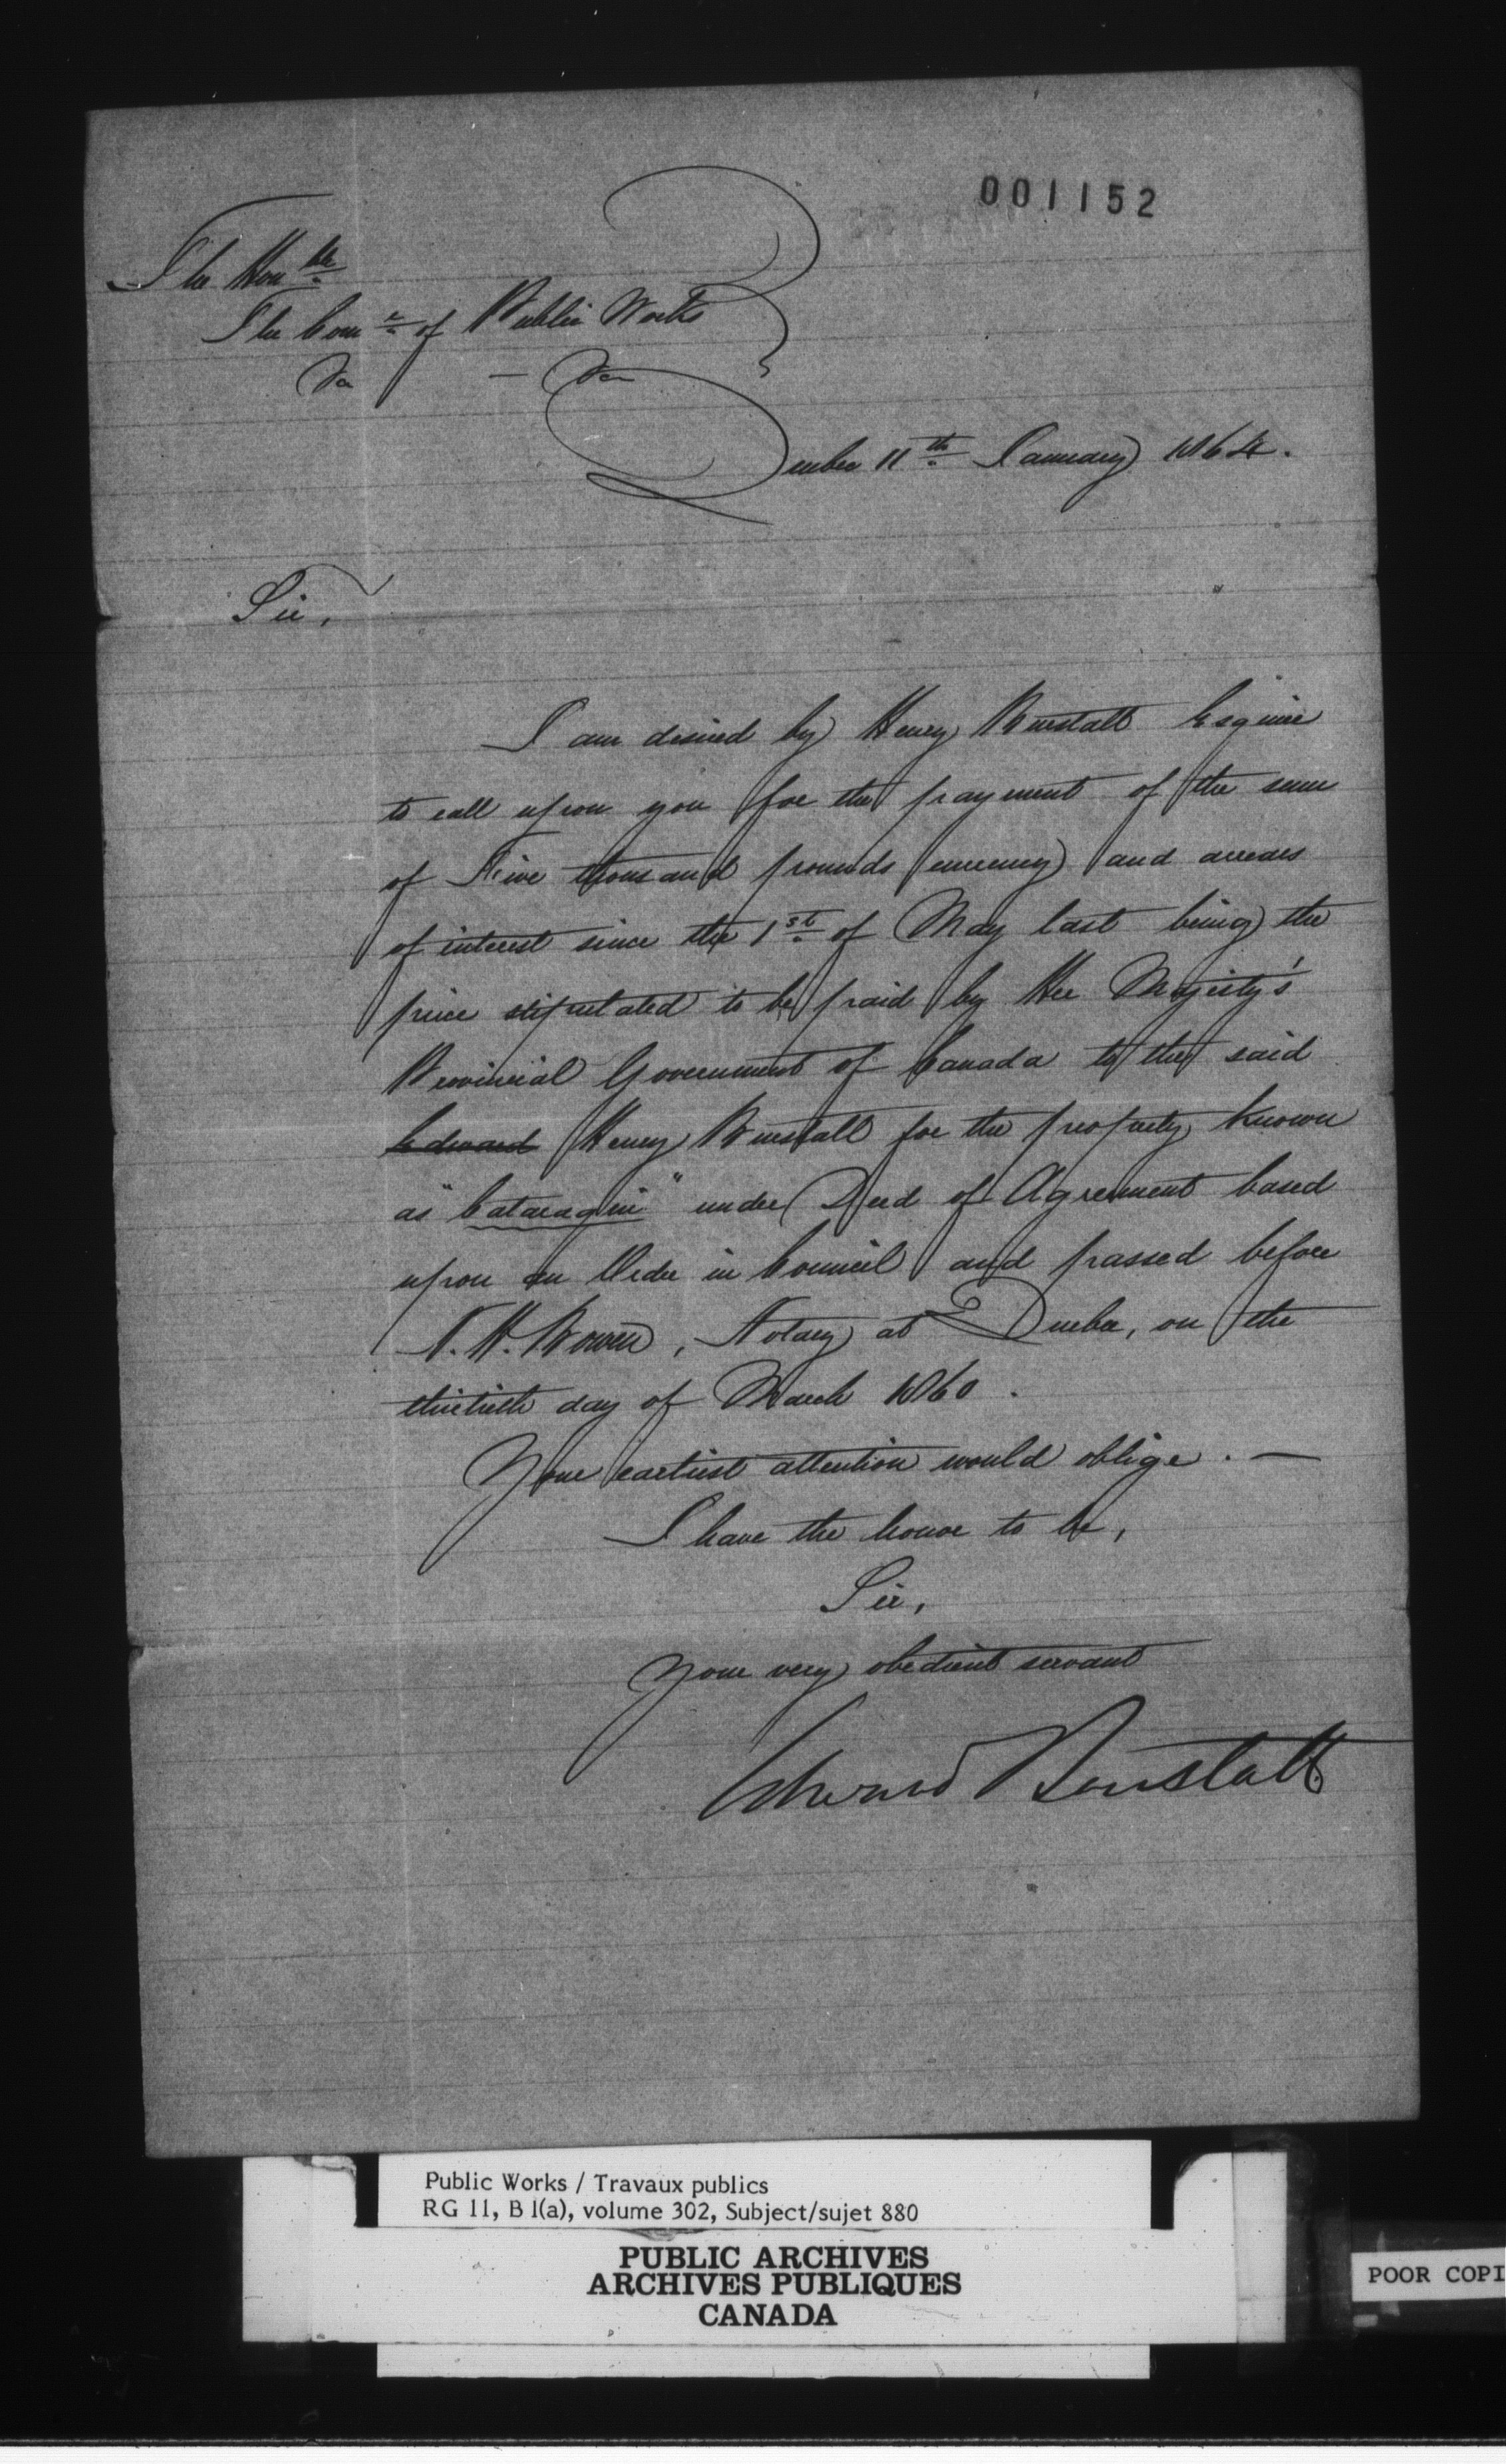 001152
The Honble
The Comr of Public Works
&a — &a
Quebec 11th January 1864.
Sir,
I am desired by Henry Burstall Esquire
to call upon you for the payment of the sum
of Five thousand pounds currency and arrears
of interest since the 1st of May last being the
price stipulated to be paid by Her Majesty's
Provincial Government of Canada to the said
Edward Henry Burstall for the property known
as "Cataraqui" under Deed of Agreement based
upon an Order in Council and passed before
N. H. Bowen, Notary at Quebec, on the
thirtieth day of March 1860.
Your earliest attention would oblige. —
I have the honor to be,
Sir,
Your very obedient servant
Edward Burstall
Public Works / Travaux publics
RG 11, B 1(a), volume 302, Subject/sujet 880
PUBLIC ARCHIVES
ARCHIVES PUBLIQUES
CANADA
POOR COPI